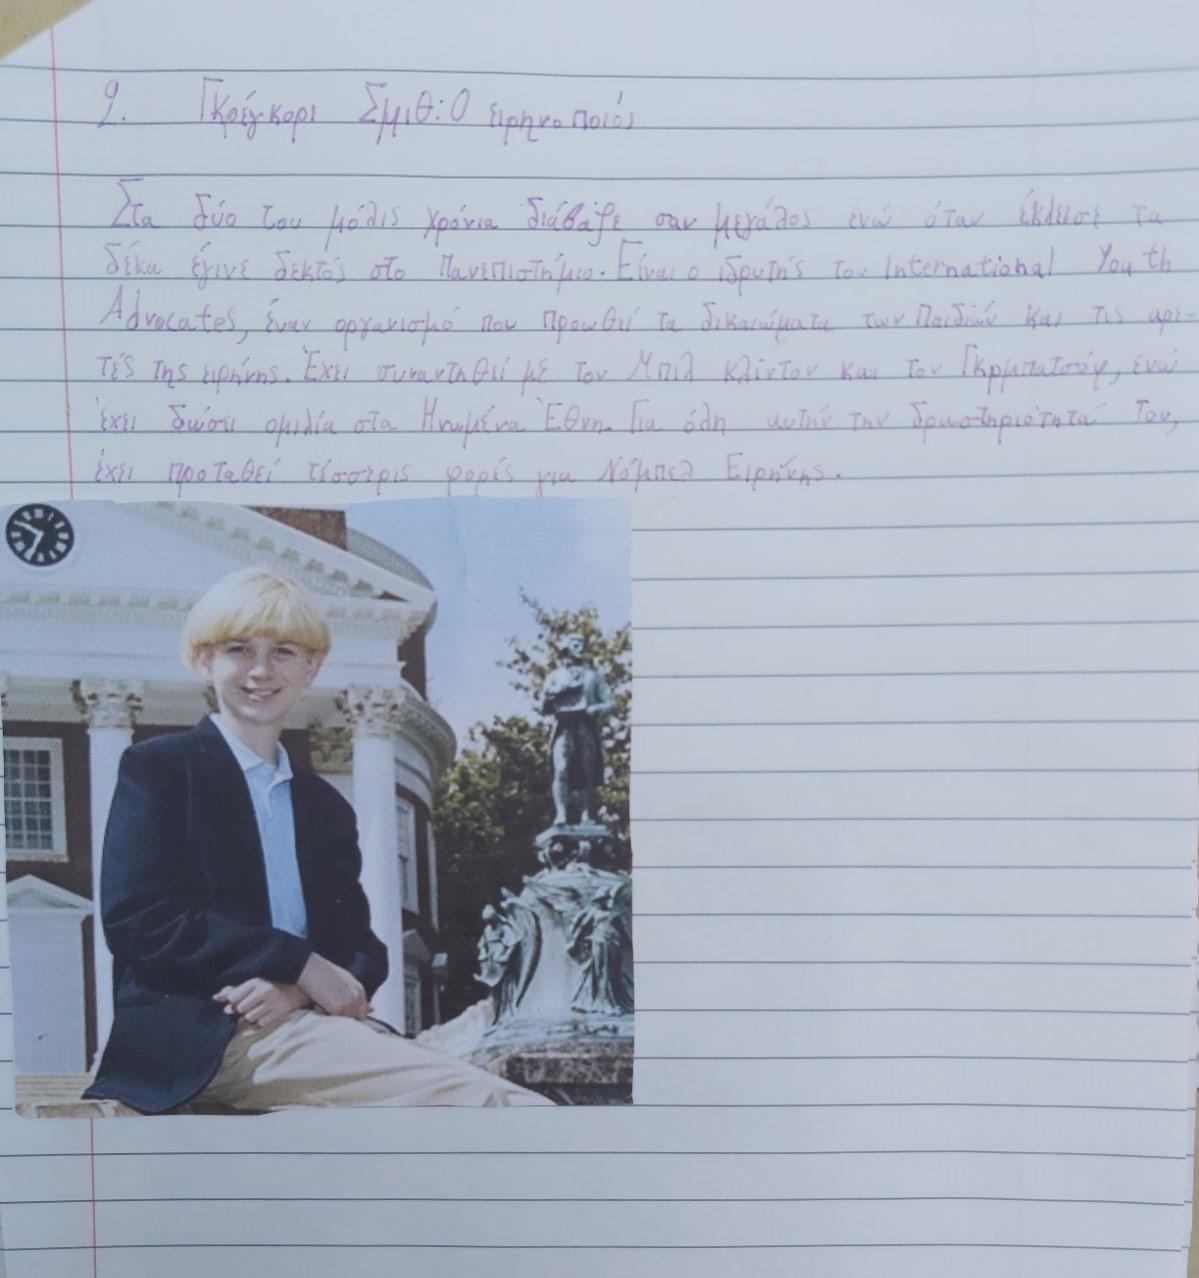 2. Γκρέγκορι Σμιθ: Ο ειρηνοποιός
Στα δύο του μόλις χρόνια διάβαζε σαν μεγάλος ενώ όταν έκλεισε τα
δέκα έγινε δεκτός στο Πανεπιστήμιο. Είναι ο ιδρυτής του International Youth
Advocates, έναν οργανισμό που προωθεί τα δικαιώματα των Παιδιών και τις αρε-
τές της ειρήνης. Έχει συναντηθεί με τον Μπιλ κλίντον και τον Γκρμπατσόφ, ενώ
έχει δώσει ομιλία στα Ηνωμένα Έθνη. Για όλη αυτήν την δραστηριότητά του,
έχει προταθεί τέσσερις φορές για Νόμπελ Ειρήνης.